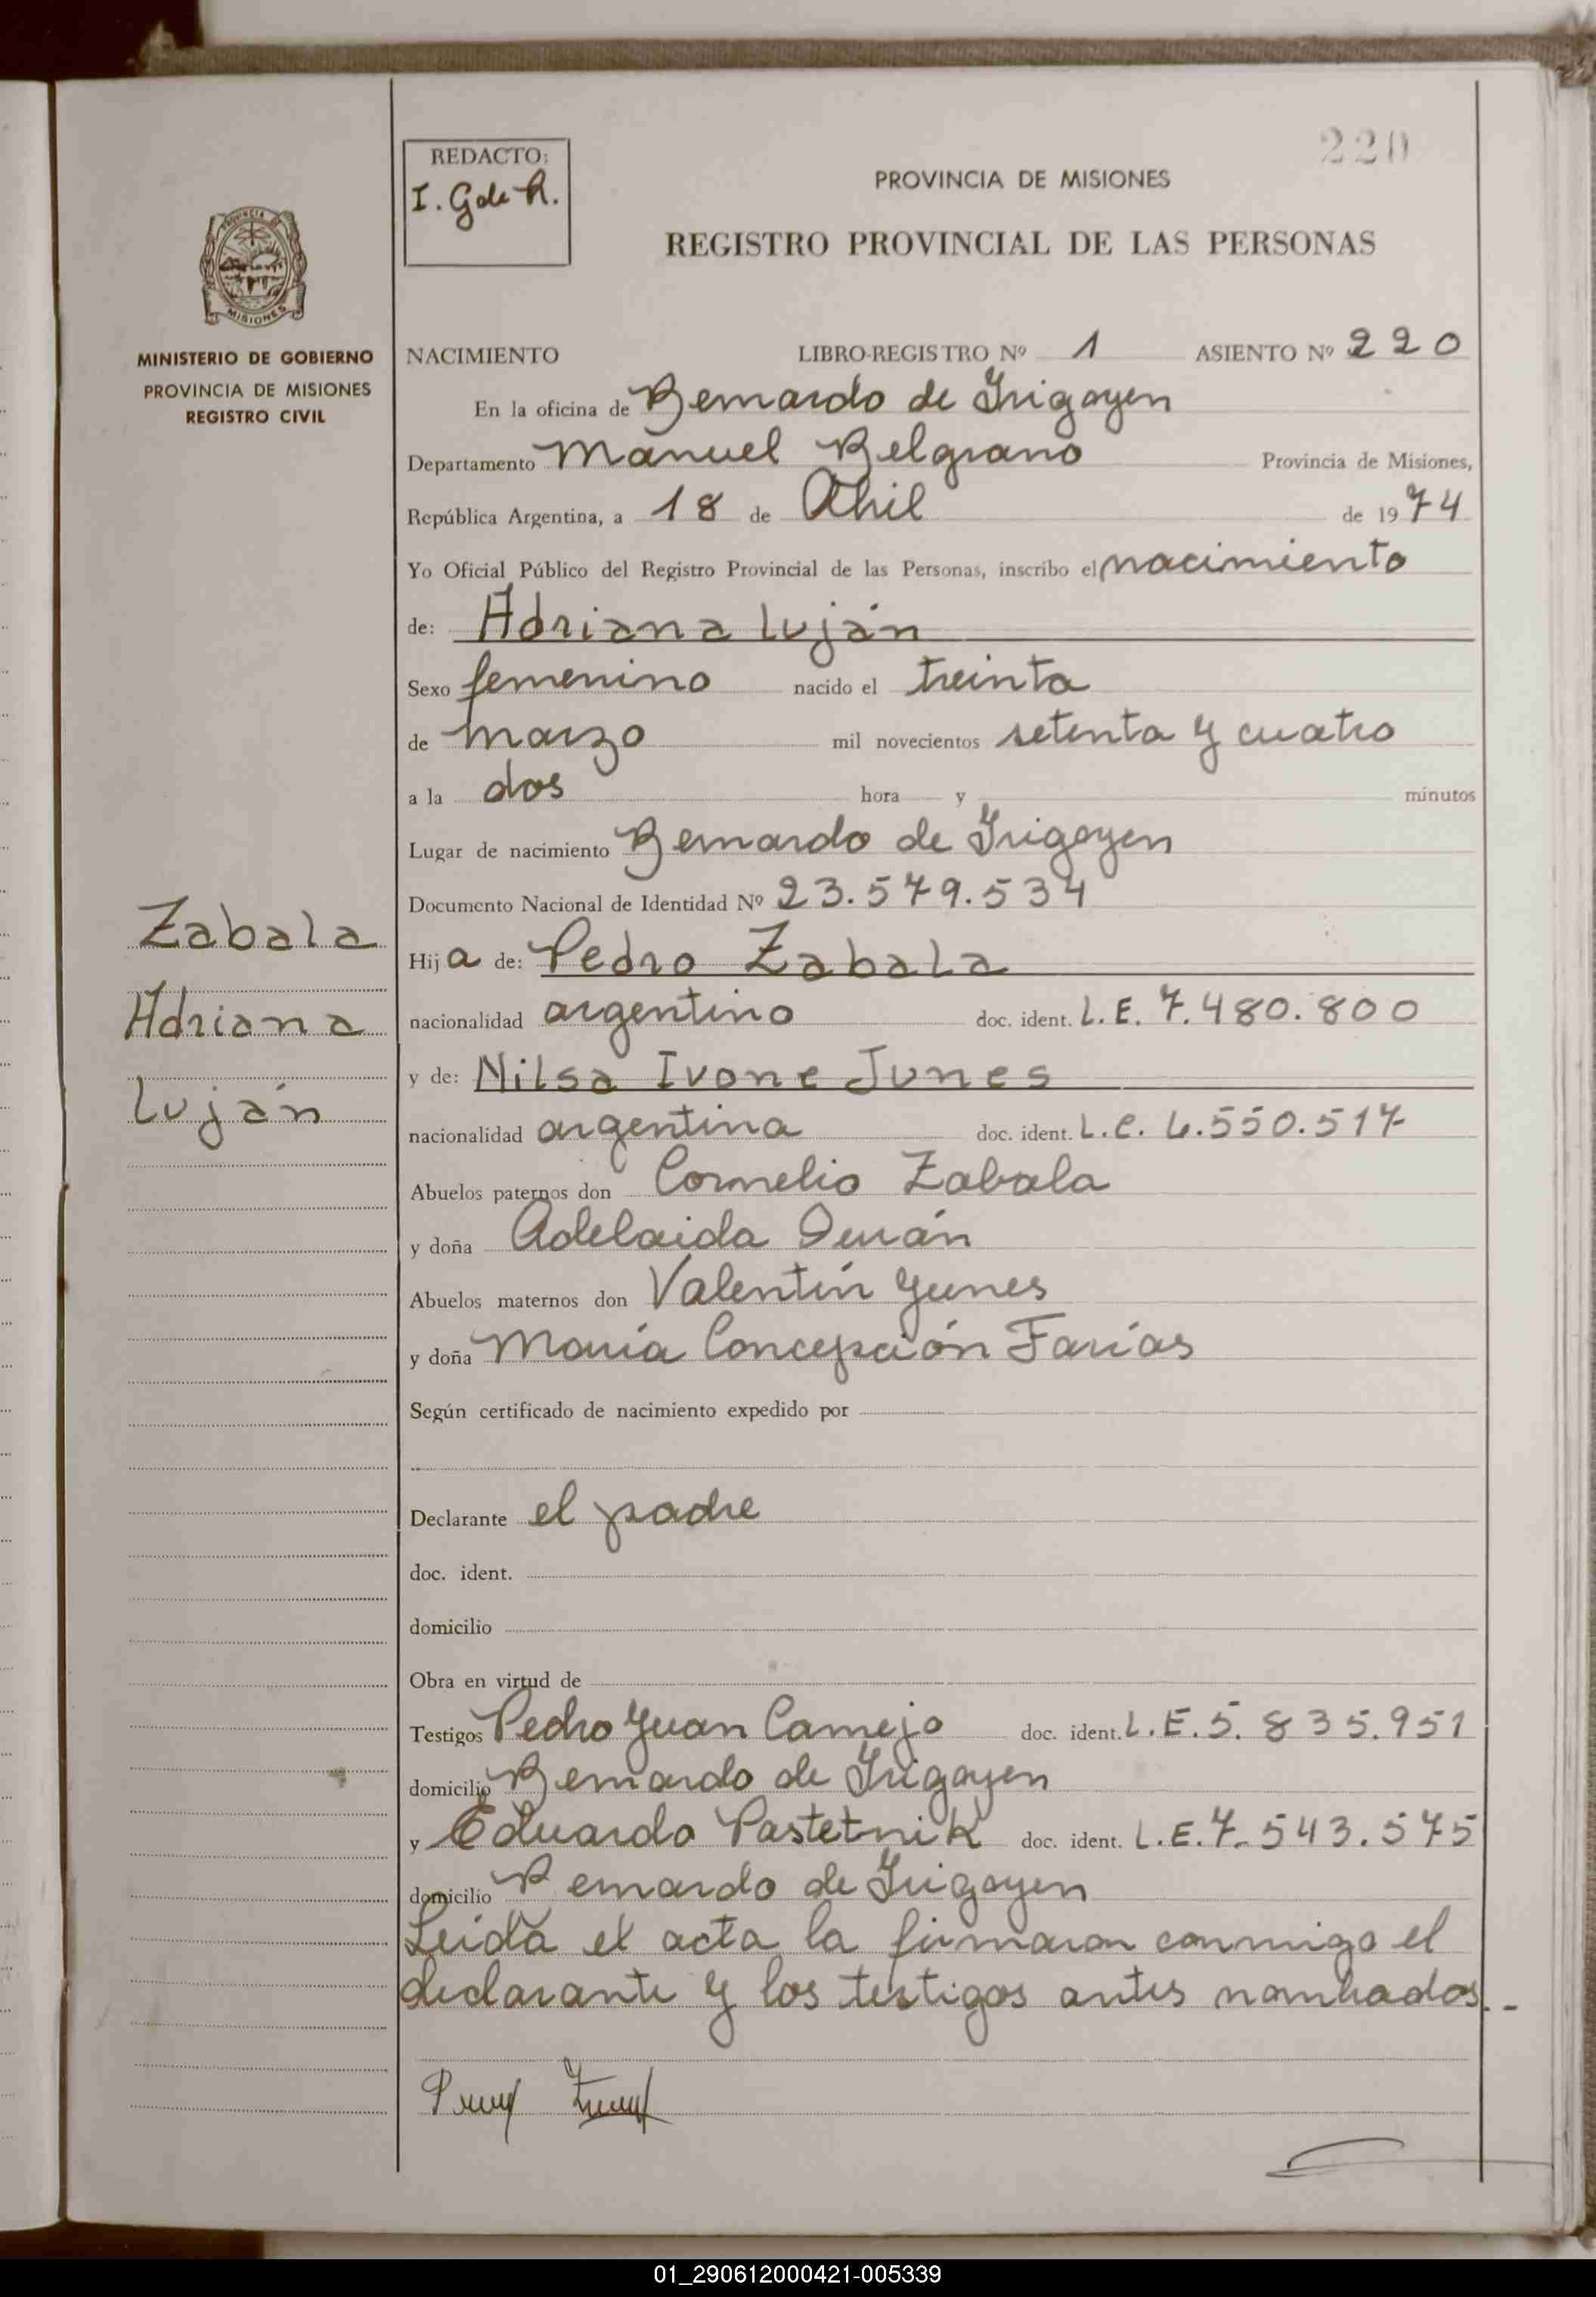 220
REDACTO:
I. G de R.
PROVINCIA DE MISIONES
REGISTRO PROVINCIAL DE LAS PERSONAS
MISIONES
MINISTERIO DE GOBIERNO
PROVINCIA DE MISIONES
REGISTRO CIVIL
NACIMIENTO LIBRO-REGISTRO Nº 1 ASIENTO Nº 220
En la oficina de Bernardo de Irigoyen
Departamento Manuel Belgrano Provincia de Misiones,
República Argentina, a 18 de Abril de 1974
Yo Oficial Público del Registro Provincial de las Personas, inscribo el nacimiento
de: Adriana Luján
Sexo femenino nacido el treinta
de marzo mil novecientos setenta y cuatro
a la dos hora y minutos
Lugar de nacimiento Bernardo de Irigoyen
Documento Nacional de Identidad Nº 23.579.534
Zabala
Adriana
Luján
Hija de: Pedro Zabala
nacionalidad argentino doc. ident. L.E. 7.480.800
y de: Nilsa Ivone Junes
nacionalidad argentina doc. ident. L.C. 6.550.517
Abuelos paternos don Cornelio Zabala
y doña Adelaida Durán
Abuelos maternos don Valentín Yunes
y doña María Concepción Farías
Según certificado de nacimiento expedido por
Declarante el padre
doc. ident.
domicilio
Obra en virtud de
Testigos Pedro Juan Camejo doc. ident. L.E. 5.835.951
domicilio Bernardo de Irigoyen
y Eduardo Pastetnik doc. ident. L.E. 7.543.575
domicilio Bernardo de Irigoyen
Leída el acta la firmaron conmigo el
declarante y los testigos antes nombrados.-
01_290612000421-005339